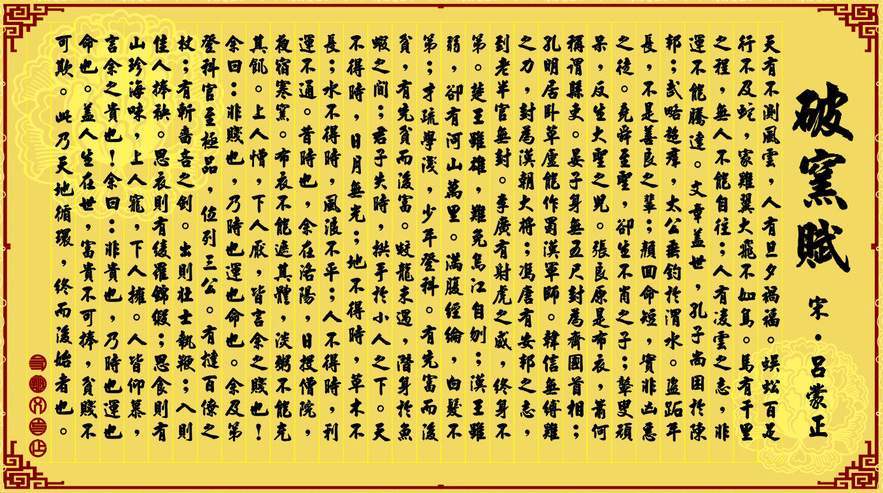 破窯賦
宋·呂蒙正
天有不測風雲,人有旦夕禍福。蜈蚣百足
行不及蛇,家雞翼大飛不如鳥。馬有千里
之程,無人不能自往;人有凌雲之志,非
運不能騰達。文章蓋世,孔子尚困於陳
邦;武略超群,太公垂釣於渭水。盜跖年
長,不是善良之輩;顏回命短,實非凶惡
之徒。堯舜至聖,卻生不肖之子;瞽叟頑
呆,反生大聖之兒。張良原是布衣,蕭何
稱謂縣吏。晏子身無五尺封為齊國首相;
孔明居臥草廬能作蜀漢軍師。韓信無縛雞
之力,封為漢朝大將;馮唐有安邦之志,
到老半官無封。李廣有射虎之威,終身不
第。楚王雖雄,難免烏江自刎;漢王雖
弱,卻有河山萬里。滿腹經綸,白髮不
第;才疏學淺,少年登科。有先富而後
貧,有先貧而後富。蛟龍未遇,潛身於魚
蝦之間;君子失時,拱手於小人之下。天
不得時,日月無光;地不得時,草木不
長;水不得時,風浪不平;人不得時,利
運不通。昔時也,余在洛陽,日投僧院,
夜宿寒窯。布衣不能遮其體,淡粥不能充
其飢。上人憎,下人厭,皆言余之賤也!
余曰:非賤也,乃時也運也命也。余及第
登科官至極品,位列三公。有撻百僚之
杖;有斬嗇吝之劍。出則壯士執鞭;入則
佳人捧袂。思衣則有綾羅錦緞;思食則有
山珍海味,上人寵,下人擁。人皆仰慕,
言余之貴也!余曰:非貴也,乃時也運也
命也。蓋人生在世,富貴不可捧,貧賤不
可欺。此乃天地循環,終而復始者也。